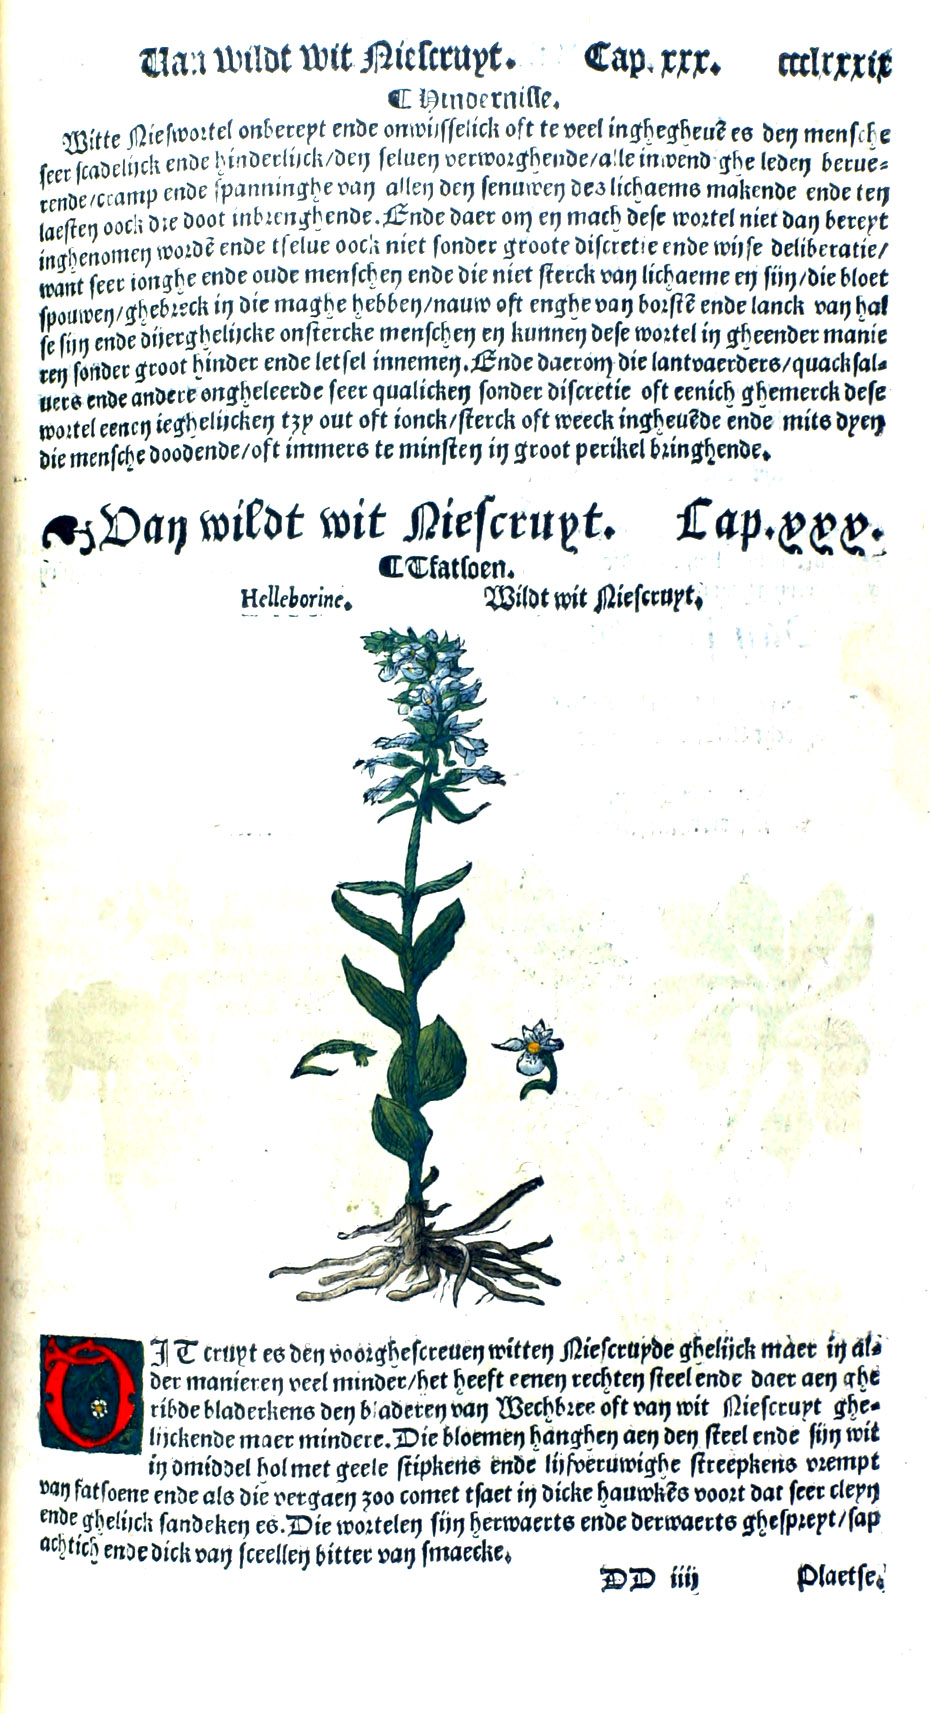 Van wildt wit Niescruyt. Cap. xxx. cccclxxxix
¶ Hindernisse.
Witte Nieswortel onbereyt ende onwijsselick oft te veel inghegheuē es den mensche
seer scadelijck ende hinderlijck/den seluen verworghende/alle inwendighe leden berue-
rende/cramp ende spanninghe van allen den senuwen des lichaems makende ende ten
laesten oock die doot inbrenghende. Ende daer om en mach dese wortel niet dan bereyt
inghenomen wordē ende tselue oock niet sonder groote discretie ende wijse deliberatie/
want seer ionghe ende oude menschen ende die niet sterck van lichaeme en sijn/die bloet
spouwen/ghebreck in die maghe hebben/nauw oft enghe van borstē ende lanck van hal
se sijn ende dijerghelijcke onstercke menschen en kunnen dese wortel in gheender manie
ren sonder groot hinder ende letsel innemen. Ende daerom die lantvaerders/quacksal-
uers ende andere ongheleerde seer qualicken sonder discretie oft eenich ghemerck dese
wortel eenen ieghelijcken tzy out oft ionck/sterck oft weeck ingheuēde ende mits dyen
die mensche doodende/oft immers te minsten in groot perikel bringhende.
Van wildt wit Niescruyt. Cap. xxx.
¶ Tfatsoen.
Helleborine. Wildt wit Niescruyt.
DIT cruyt es den voorghescreuen witten Niescruyde ghelijck maer in al-
der manieren veel minder/het heeft eenen rechten steel ende daer aen ghe
ribde bladerkens den bladeren van Wechbree oft van wit Niescruyt ghe-
lijckende maer mindere. Die bloemen hanghen aen den steel ende sijn wit
in dmiddel hol met geele stipkens ende lijfveruwighe streepkens vrempt
van fatsoene ende als die vergaen zoo comet tsaet in dicke hauwkēs voort dat seer cleyn
ende ghelijck sandeken es. Die wortelen sijn herwaerts ende derwaerts ghespreyt/sap
achtich ende dick van sceellen bitter van smaecke.
DD iiij Plaetse.